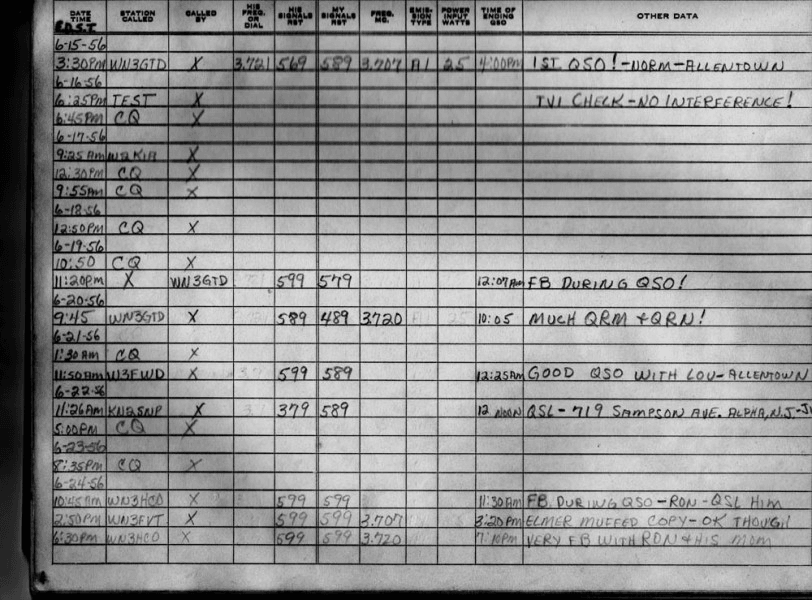 DATE TIME STATION CALLED CALLED BY HIS FREQ. OR DIAL HIS SIGNALS RST MY SIGNALS RST FREQ. MC. EMIS- SION TYPE POWER INPUT WATTS TIME OF ENDING QSO OTHER DATA
E.D.S.T.
6-15-56
3:30PM WN3GTD X 3,721 569 589 3.707 A1 25 4:00PM 1ST QSO!-NORM-ALLENTOWN
6-16-56
6:25PM TEST X TVI CHECK-NO INTERFERENCE!
6:45PM CQ X
6-17-56
9:25AM X
12:30PM CQ X
9:55AM CQ X
6-18-56
12:50PM CQ X
6-19-56
10:50 CQ X
11:20PM X WN3GTD 599 579 12:07AM FB DURING QSO!
6-20-56
9:45 WN3GTD X 589 489 3720 A1 25 10:05 MUCH QRM + QRN!
6-21-56
1:30AM CQ X
11:50AM W3FWD X 599 589 12:25AM GOOD QSO WITH LOU-ALLENTOWN
6-22-56
11:26AM KN2SNP X 379 589 12 NOON QSL-719 SAMPSON AVE. ALPHA, N.J.
5:00PM CQ X
6-23-56
8:35PM CQ X
6-24-56
10:45AM WN3HCO X 599 599 11:30AM FB DURING QSO-RON-QSL HIM
2:50PM WN3FVT X 599 599 3.707 3:20PM ELMER MUFFED COPY-OK THOUGH
6:30PM WN3HCO X 599 599 3.720 7:10PM VERY FB WITH RON & HIS MOM